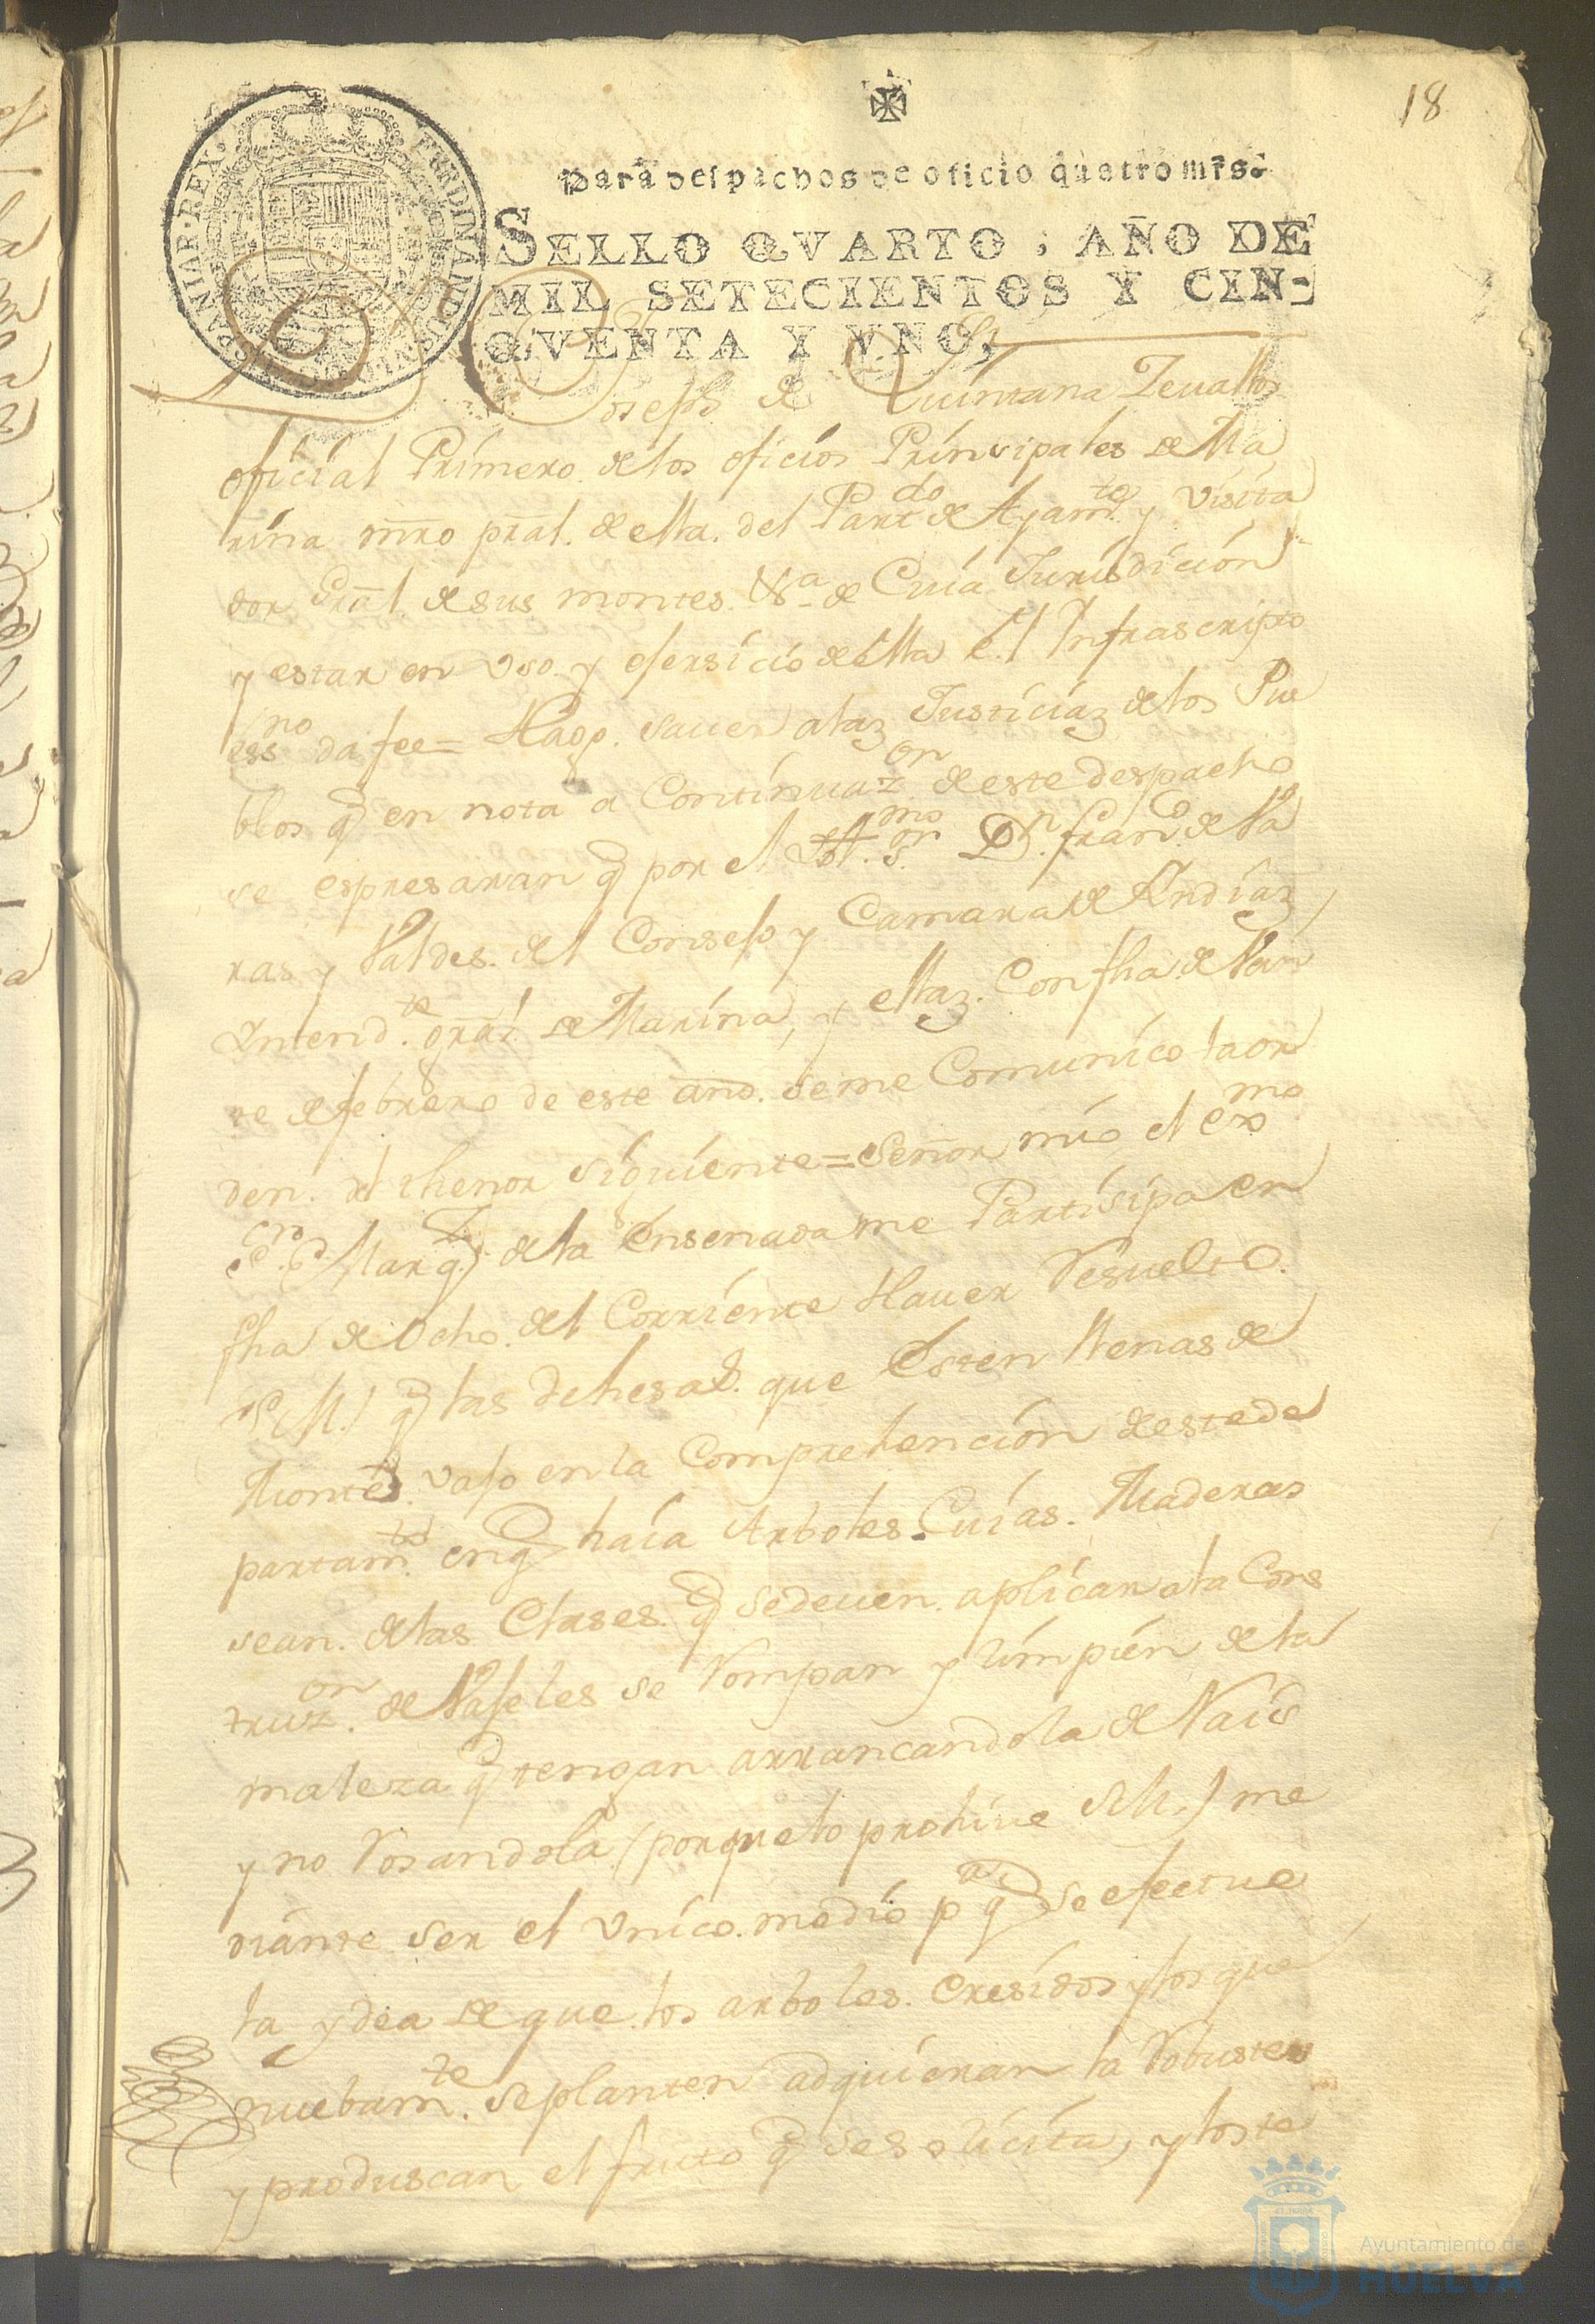 18
Para despachos de oficio quatro mrs.
SELLO QVARTO, AÑO DE
MIL SETECIENTOS Y CIN-
QVENTA Y VNO,
FERDINANDUS HISPANIAR·REX·
Dn Joseph de Quintana Zeuallos
oficial Primero de los oficios Prinsipales de Ma
rina mro pral. de ella. del Partdo de Ayamte y visita
dor Gral. de sus montes. &a de Cuia Jurisdicion
y estar en vso. y efersicio de ella el Infrascripto
essno da fee= Hago. sauer a las Justicias de los Pue
blos q en nota a Continuazon de este despacho
se espresaran q por el Illmo. Sor. Dn. franco. de Va
ras y Valdes. del Consejo y Camara de Indias
Intendte. gral. de Marina, y ellas. Con fha. de Vein
te de febrero de este año. se me Comunico la or
den. del thenor siguiente= Señor mio el exmo
Sor. Marqs. de la Ensenada me Partisipa en
fha de Ocho. del Corriente Hauer Resuelto.
S.M.) q las dehesas. que Esten llenas de
Montes. vajo en la Comprehencion de este de
partamto. en q haia Arboles. Cuias. Maderas
sean. de las Clases. q se deuen. aplicar a la Cons
truzon. de Vajeles se Rompan y limpien de la
maleza q tengan arrancandola de Raiz
y no Rosandola (porque lo prohive S.M.) me
diante ser el vnico. medio pa q se efectue
la ydea de que los arboles. Cresidos y los que
nuebamte. se planten adquieran la Robustez
y produscan el fruto q se solicita, y los te
Ayuntamiento de
HUELVA